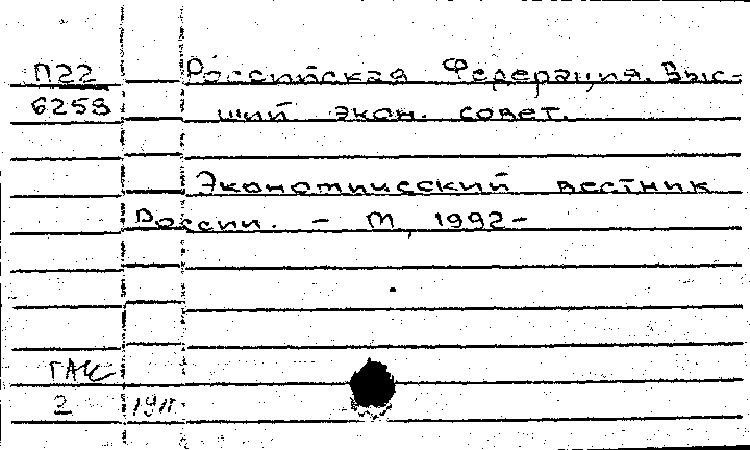 П22 Российская Федерация. Выс-
6259 ший экон. совет.
Экономический вестник
России. – М, 1992–
ГАК
2